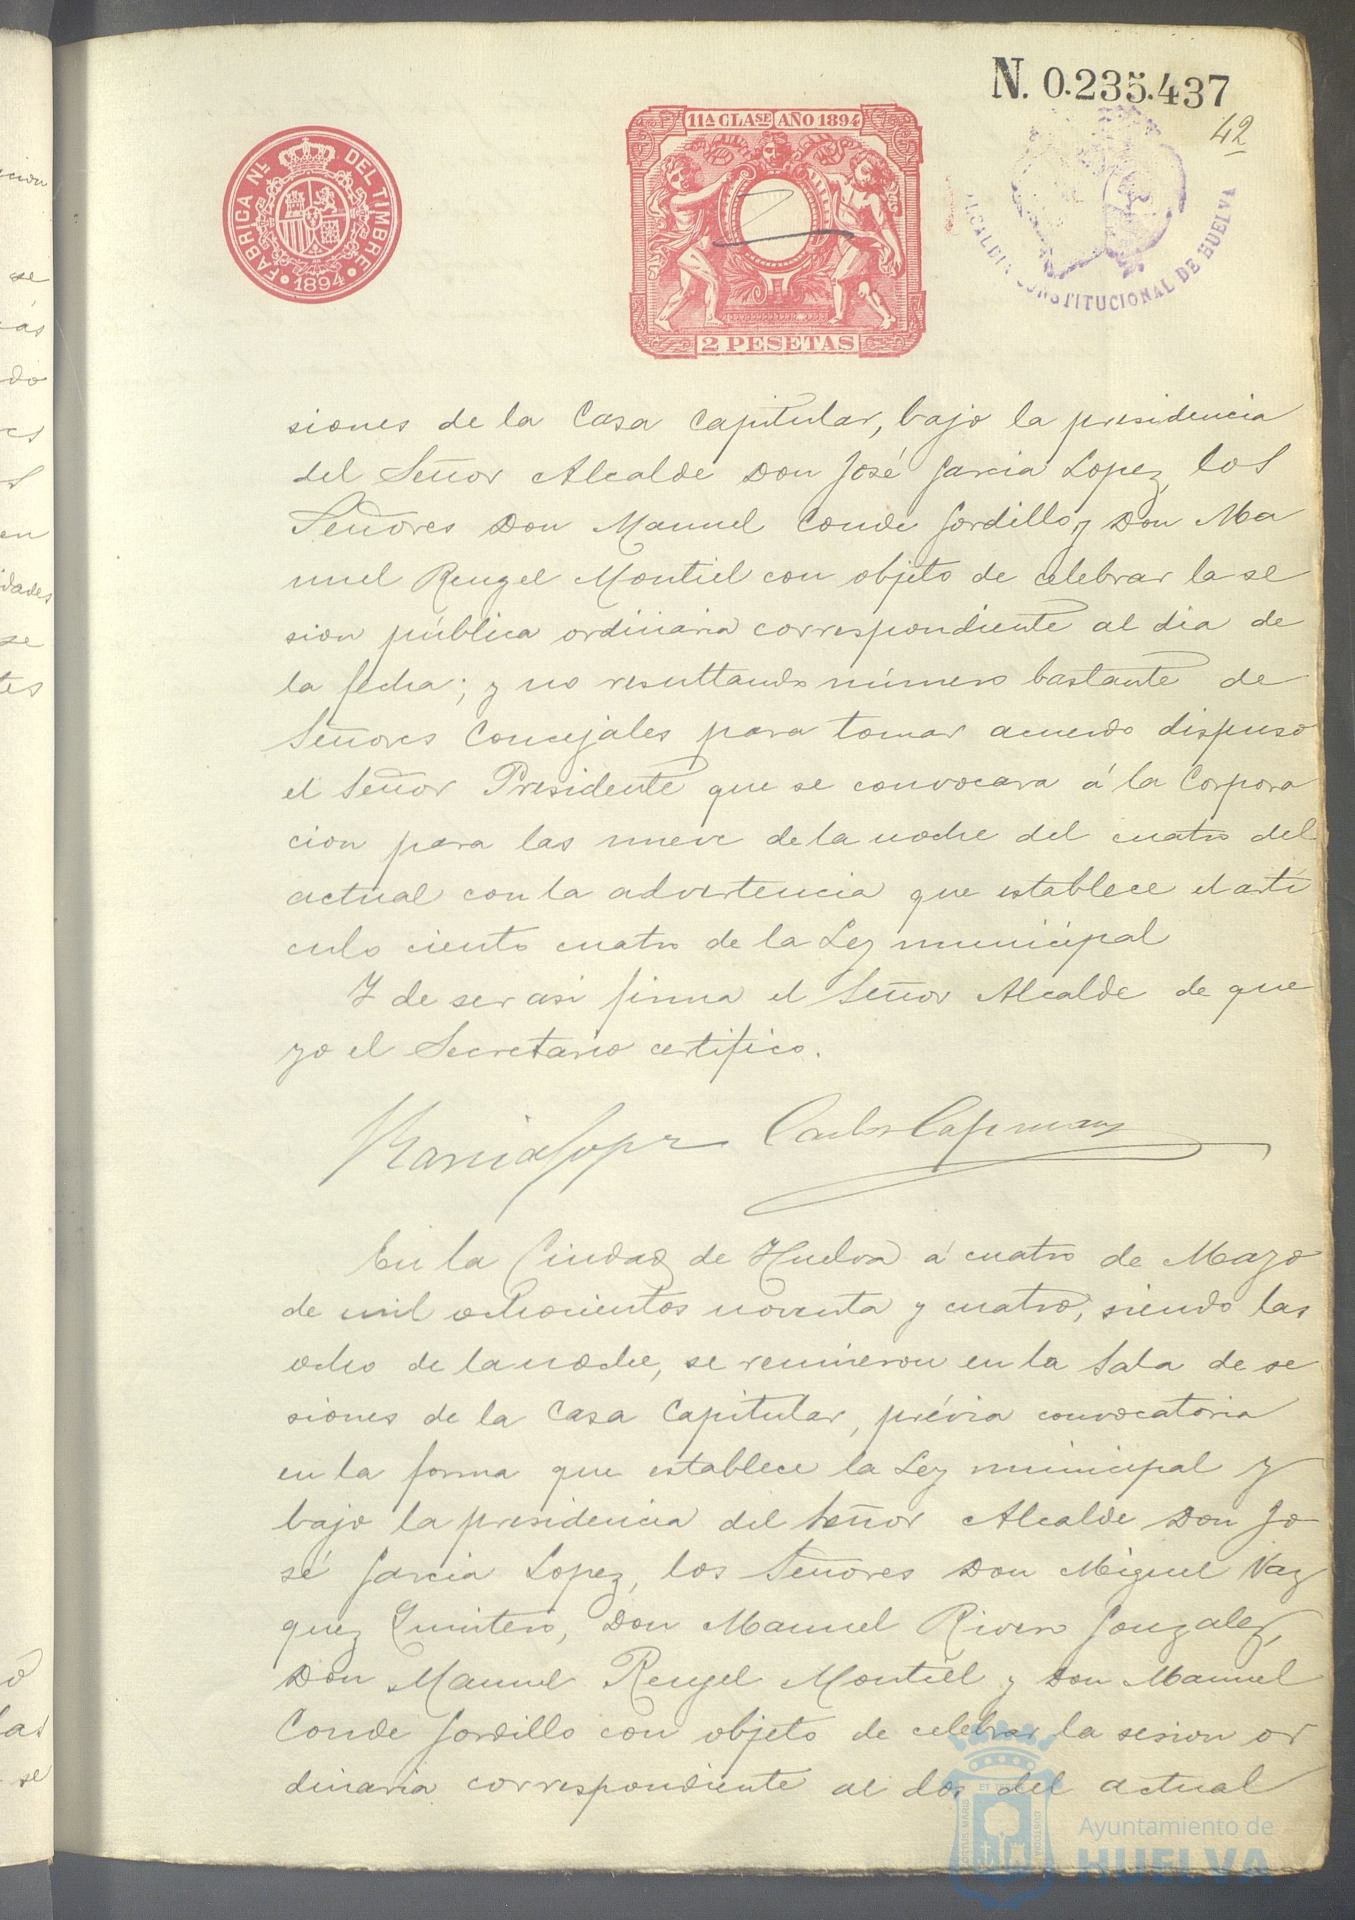 N. 0.235.437
42
11ª CLASE AÑO 1894
FABRICA NL. DEL TIMBRE
1894
2 PESETAS
ALCALDIA CONSTITUCIONAL DE HUELVA
siones de la Casa Capitular, bajo la presidencia
del Señor Alcalde Don José Garcia Lopez, los
Señores Don Manuel Conde Gordillo y Don Ma
nuel Rengel Montiel con objeto de celebrar la se
sion pública ordinaria correspondiente al dia de
la fecha; y no resultando número bastante de
Señores Concejales para tomar acuerdo dispuso
el Señor Presidente que se convocara á la Corpora
cion para las nueve de la noche del cuatro del
actual con la advertencia que establece el arti
culo ciento cuatro de la Ley municipal
Y de ser asi firma el Señor Alcalde de que
yo el Secretario certifico.
Garcia Lopez
En la Ciudad de Huelva á cuatro de Mayo
de mil ochocientos noventa y cuatro, siendo las
ocho de la noche, se reunieron en la Sala de se
siones de la Casa Capitular, prévia convocatoria
en la forma que establece la Ley municipal y
bajo la presidencia del Señor Alcalde Don Jo
sé Garcia Lopez, los Señores Don Miguel Vaz
quez Quintero, Don Manuel Rivero Gonzalez,
Don Manuel Rengel Montiel y Don Manuel
Conde Gordillo con objeto de celebrar la sesion or
dinaria correspondiente al dos del actual
Ayuntamiento de
HUELVA